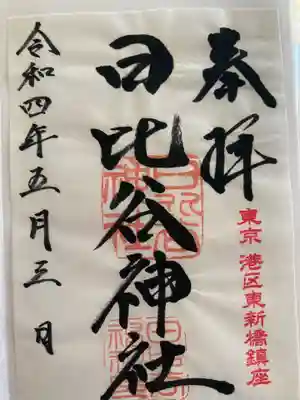 奉拝
東京 港区東新橋鎮座
日比谷神社
令和四年五月三日